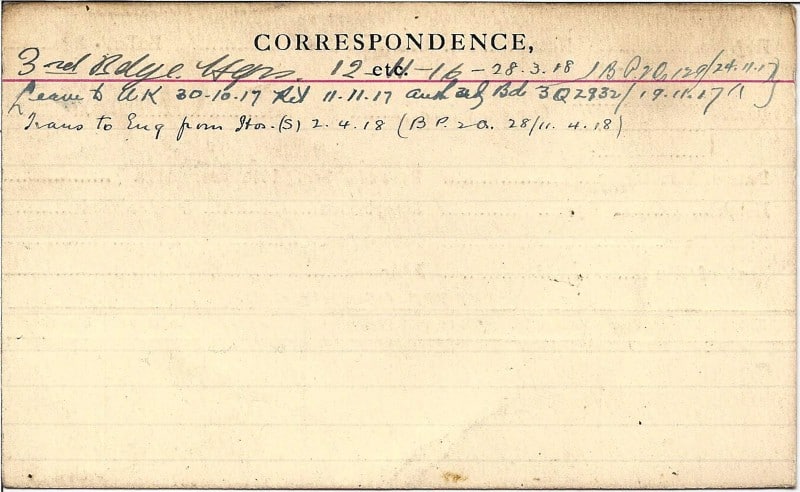 CORRESPONDENCE,
etc.
3rd Bdge. Hqrs. 12-11-16 - 28.3.18 (B.P.20, 129/24.11.17
(Leave to UK 30-10-17 Ret 11.11.17 auth Bde 3Q2932/19.11.17)
Trans to Eng from Hos.(S) 2.4.18 (B P. 20. 28/11.4.18)